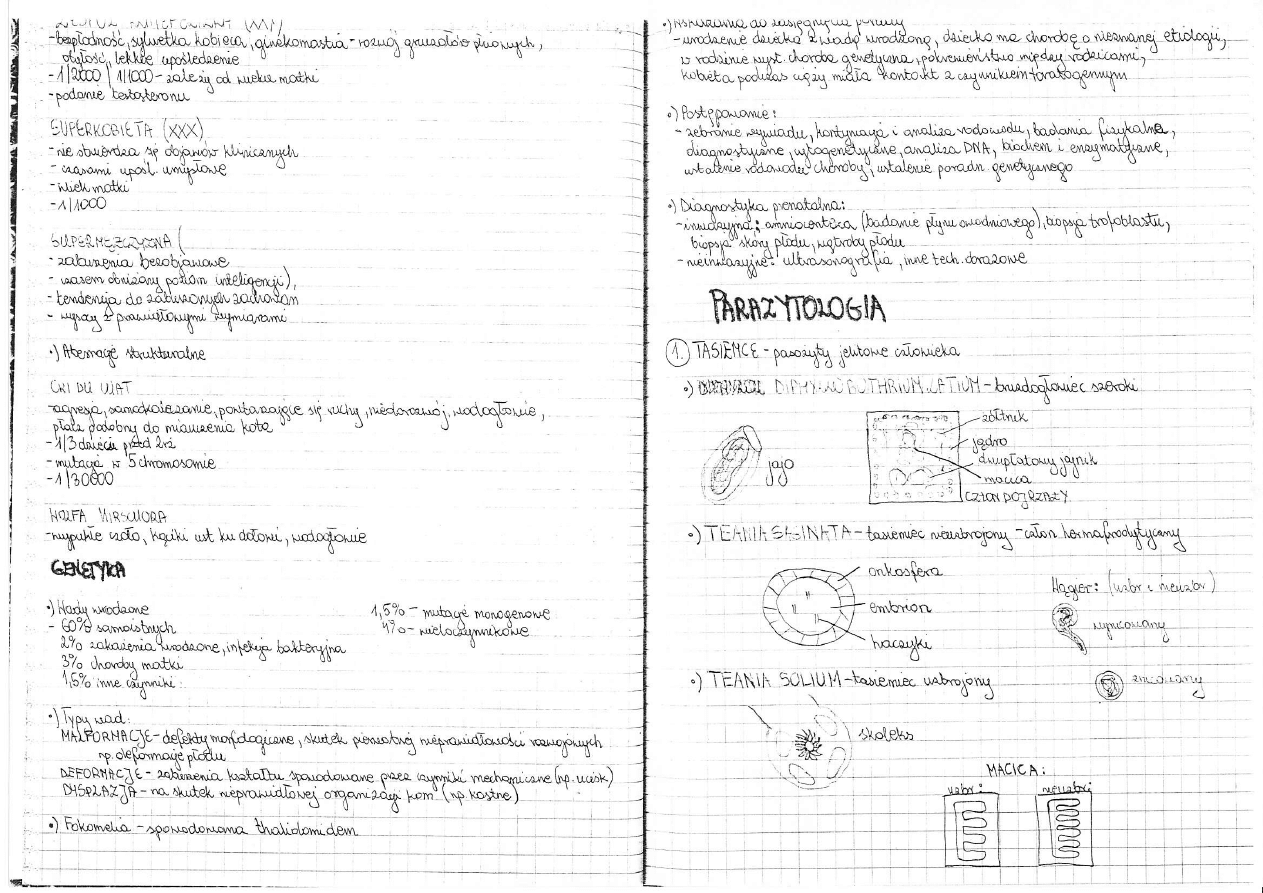 -bezpłodność, sylwetka kobieca, ginekomastia - rozwój gruczołów płciowych,
otyłość, lekkie upośledzenie
- 1/2000 / 1/1000 - zależy od wieku matki
- podanie testosteronu
SUPERKOBIETA (XXX)
- nie stwierdza się objawów klinicznych
- czasami upośl. umysłowe
- wiek matki
- 1/1000
SUPERMĘŻCZYZNA (
- zaburzenia bezobjawowe
- czasem obniżony poziom inteligencji),
- tendencja do zaburzonych zachowań
- wyżsi z prawidłowymi wymiarami
•) Aberracje strukturalne
CRI DU CHAT
-agresja, samookaleczanie, powtarzające się ruchy, niedorozwój, wodogłowie,
płacz podobny do miauczenia kota
- 1/3 dzieci przed 2rż
- mutacja w 5 chromosomie
- 1/30000
WOLFA HIRSCHORA
- wypukłe czoło, kąciki ust ku dołowi, wodogłowie
GENETYKA
•) Wady wrodzone
- 60% samoistnych
2% zakażenia wrodzone, infekcja bakteryjna
3% choroby matki
1,5% inne czynniki:
1,5% - mutacje monogenowe
1% - wieloczynnikowe
•) Typy wad:
MALFORMACJE - defekty morfologiczne, skutek pierwotnej nieprawidłowości rozwojowych
np. deformacje płodu
DEFORMACJE - zaburzenia kształtu spowodowane przez czynniki mechaniczne (np. ucisk)
DYSPLAZJA - na skutek nieprawidłowej organizacji kom. (np. kostne)
•) Fokomelia - spowodowana thalidomidem
•) Wskazania do zasięgnięcia porady
- urodzenie dziecka z wadą wrodzoną, dziecko ma chorobę o nieznanej etiologii,
w rodzinie wyst. choroba genetyczna, pokrewieństwo między rodzicami,
kobieta podczas ciąży miała kontakt z czynnikiem toratogennym
•) Postępowanie:
- zebranie wywiadu, kontynuacja i analiza rodowodu, badania fizykalne,
diagnostyczne, cytogenetyczne, analiza DNA, biochem i enzymatyczne,
ustalenie rodowodu choroby, ustalenie poradn. genetycznego
•) Diagnostyka prenatalna:
- inwazyjna: amniocenteza (badanie płynu owodniowego), biopsja trofoblastu,
biopsja skóry płodu, wątroby płodu
- nieinwazyjne: ultrasonografia, inne tech. obrazowe
PARAZYTOLOGIA
1. TASIEMCE - pasożyty jelitowe człowieka
•) DIPHYLLOBOTHRIUM LATIUM - bruzdogłowiec szeroki
jajo
żółtnik
jądro
dwupłatowy jajnik
macica
CZŁON DOJRZAŁY
•) TEANIA SAGINATA - tasiemiec nieuzbrojony - człon hermafrodytyczny
onkosfera
embrion
haczyki
Wągier: (uzbr i nieuzbr)
wynicowany
•) TEANIA SOLIUM - tasiemiec uzbrojony
skoleks
MACICA:
uzbr:
nieuzbr: